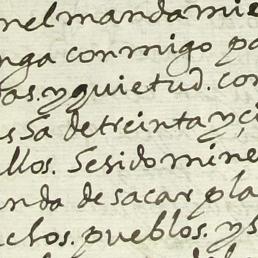 nel mandamie
nga conmigo pa
as. y quietud. con
s Sa de treinta y çi
llos. Se sido mine
nda de sacar pla
chos. pueblos. y s